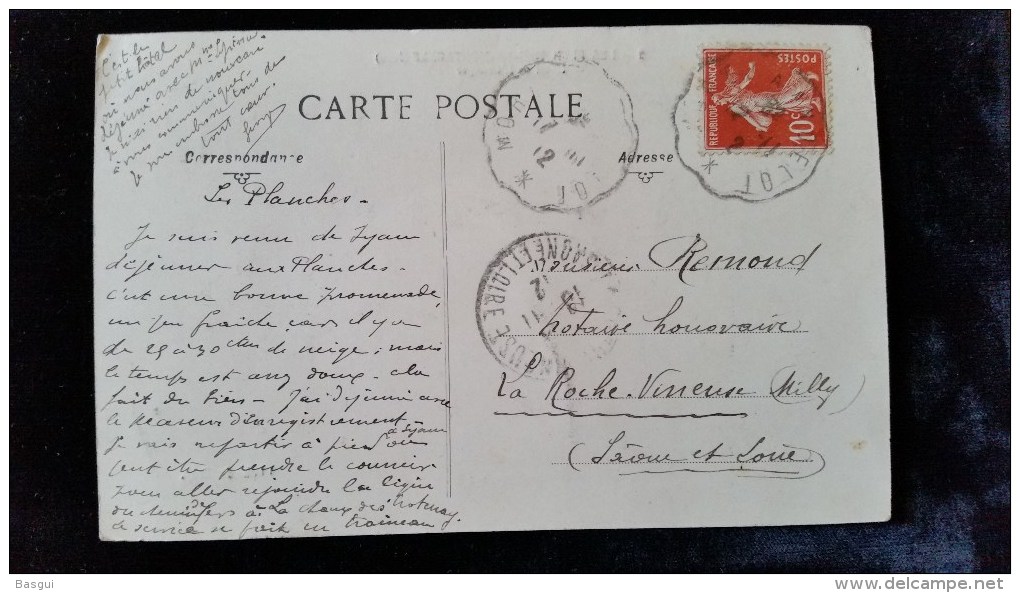 C'est le
petit hôtel
où nous avons
déjeuné avec Mme
Je n'ai rien de nouveau
à vous communiquer.
Je vous embrasse tous de
tout cœur.
CARTE POSTALE
Correspondance
Adresse
REPUBLIQUE FRANÇAISE
POSTES
10c
Les Planches -
Je suis venu de Syam
déjeuner aux Planches -
c'est une bonne promenade,
un peu fraîche, car il y a
de 25 à 30 cten de neige ; mais
le temps est assez doux -
fait du bien - J'ai déjeuné avec
le Receveur d'Enregistrement -
Je vais repartir à pied à Syam ou
peut être prendre le courrier
pour aller rejoindre la ligne
du chemin de fer à La Chaux des Crotenay.
le service se fait en traineau
Monsieur Remond
Notaire honoraire
La Roche-Vineuse Milly
(Saône et Loire)
SAONE ET LOIRE
Basgui
www.delcampe.net